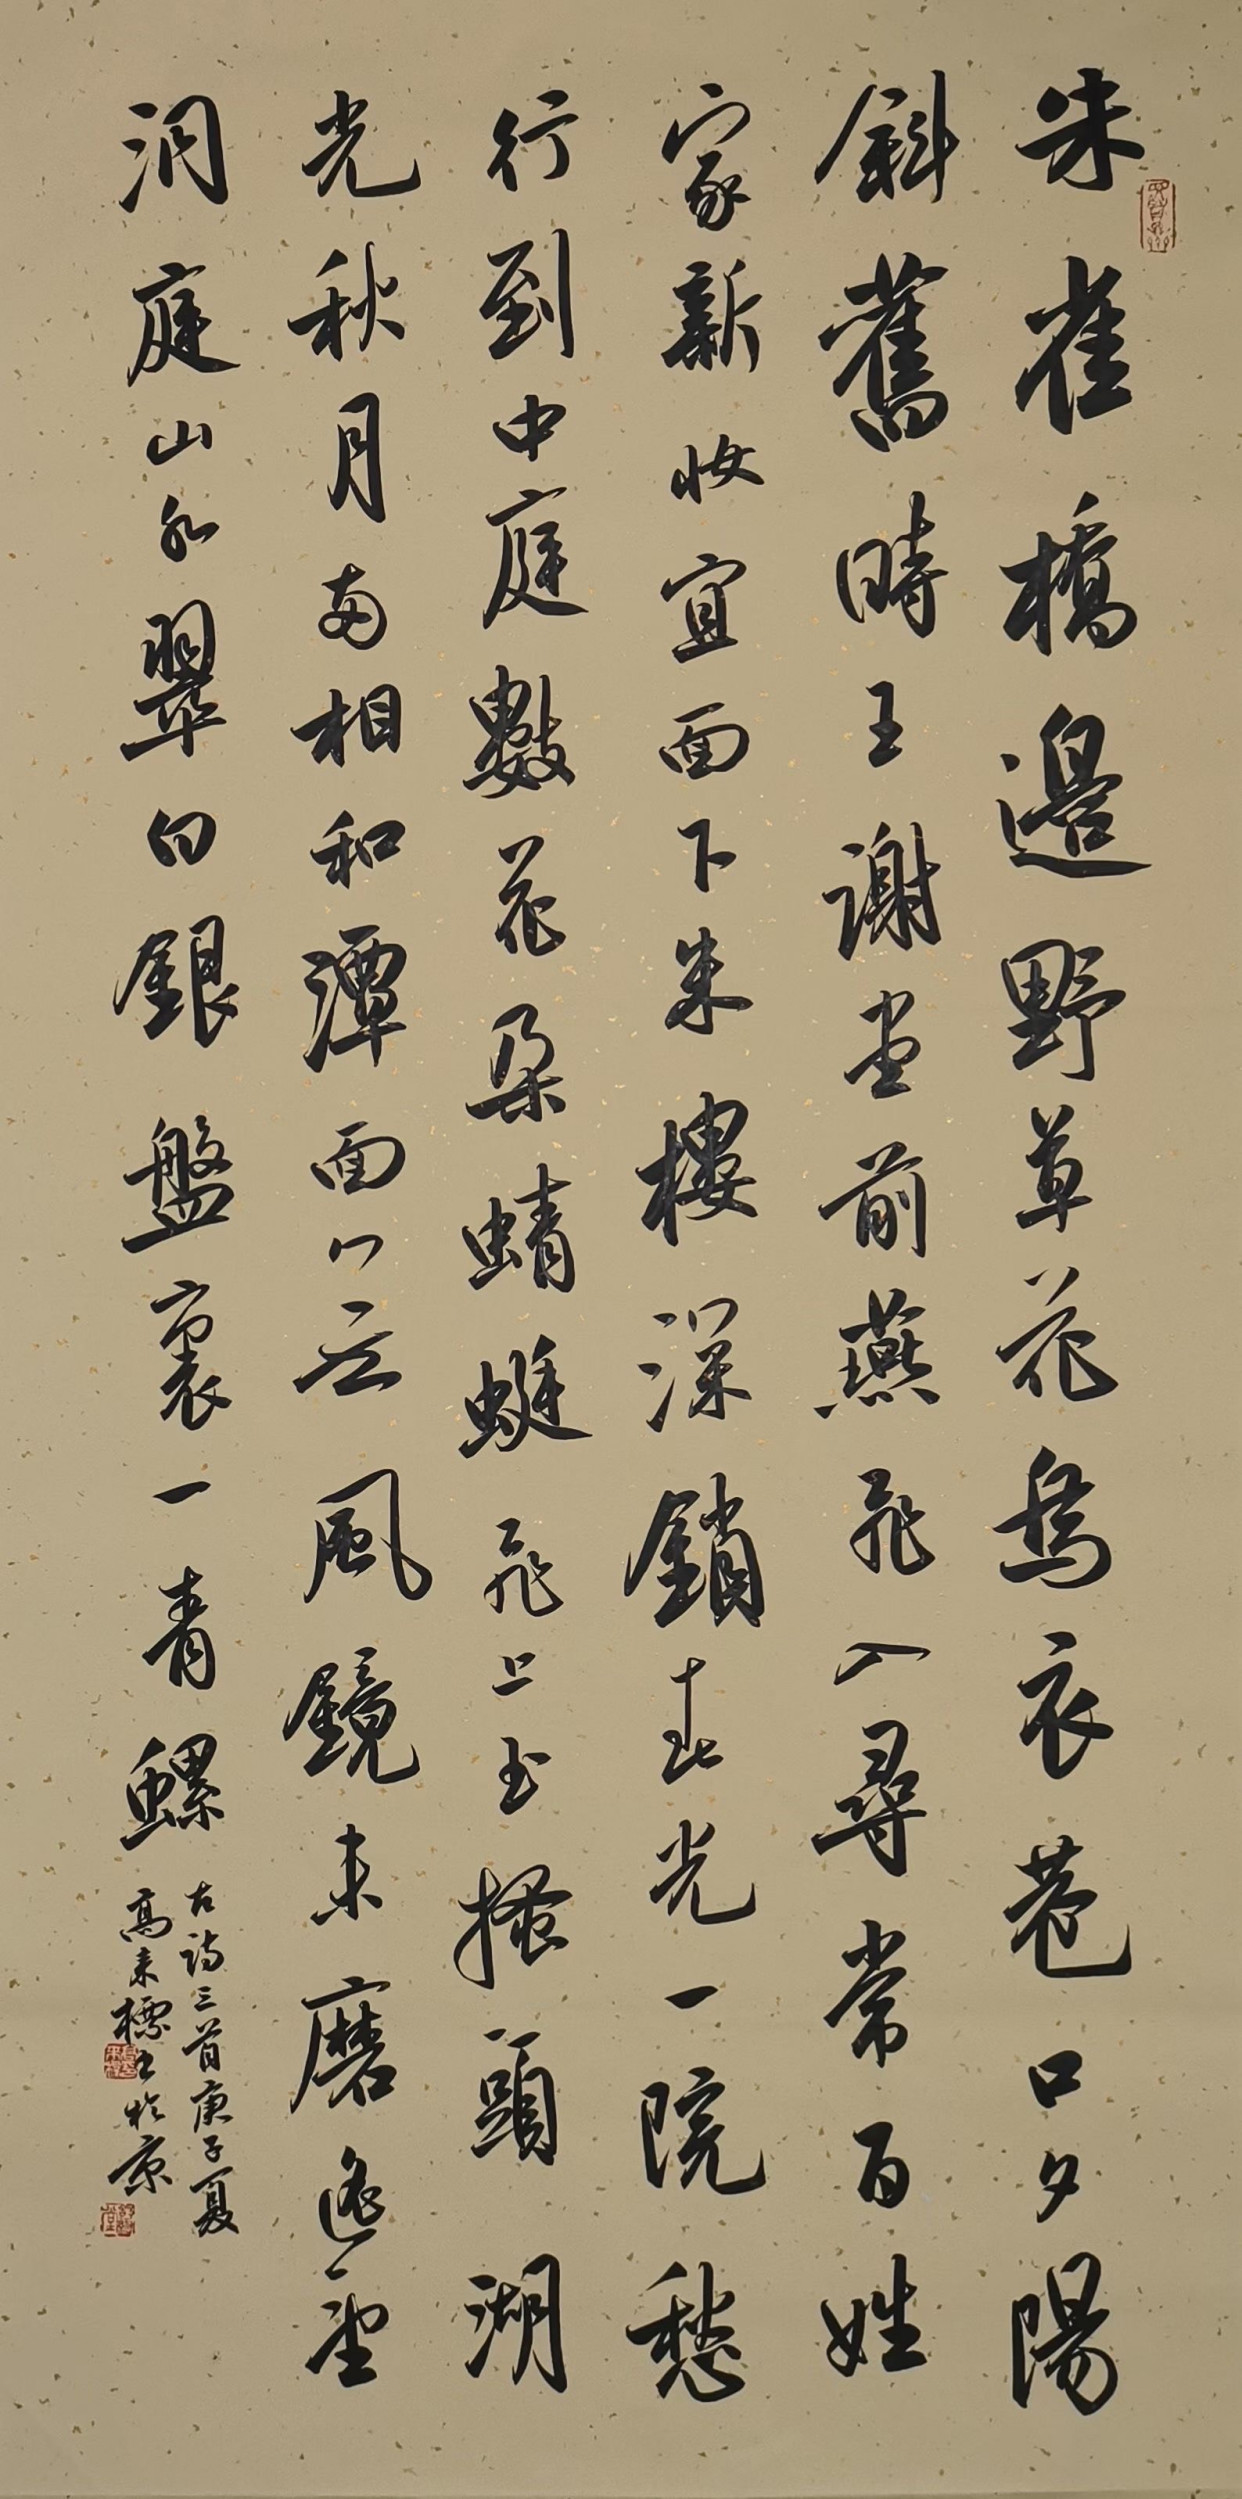 朱雀橋邊野草花烏衣巷口夕陽
斜舊時王謝堂前燕飛入尋常百姓
家新妝宜面下朱樓深鎖春光一院愁
行到中庭數花朵蜻蜓飛上玉搔頭湖
光秋月兩相和潭面以无風鏡未磨遙望
洞庭山水翠白銀盤裏一青螺
古詩三首庚子夏
高来標書於京